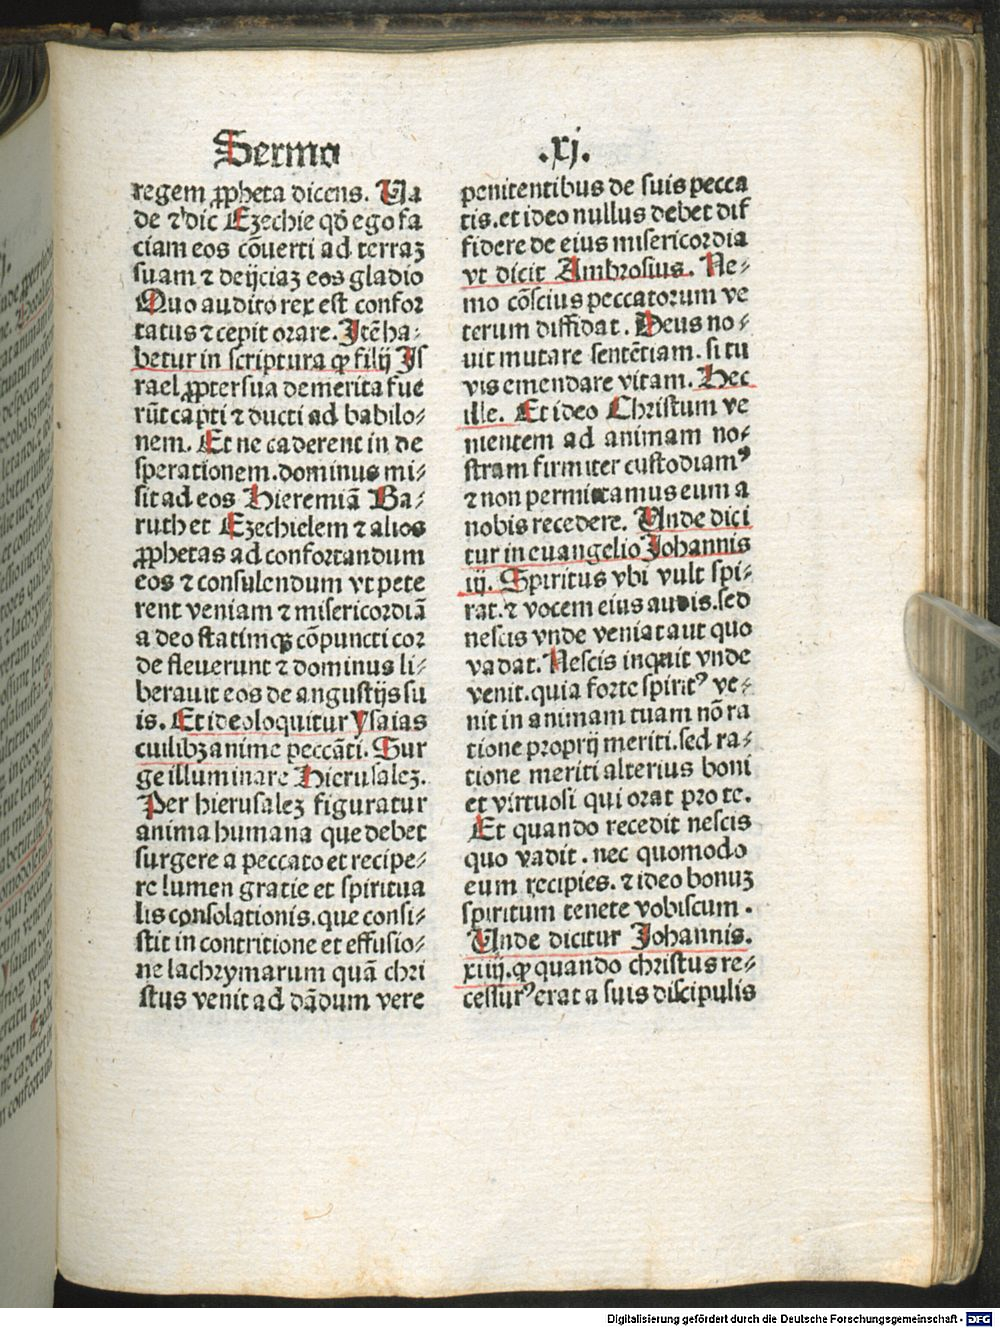 Sermo
.xj.
regem ꝓpheta dicens. Ua
de ⁊ dic Ezechie qđ ego fa
ciam eos cōuerti ad terraꝫ
suam ⁊ deijciaꝫ eos gladio
Quo audito rex est confor
tatus ⁊ cepit orare. Itē ha⸗
betur in scriptura ꝙ filij Is
rael ꝓpter sua demerita fue
rūt capti ⁊ ducti ad babilo⸗
nem. Et ne caderent in de
sperationem.dominus mi⸗
sit ad eos Hieremiā Ba⸗
ruth et Ezechielem ⁊ alios
ꝓphetas ad confortandum
eos ⁊ consulendum vt pete
rent veniam ⁊ misericordiā
a deo statimqꝫ cōpuncti cor
de fleuerunt ⁊ dominus li⸗
berauit eos de angustijs su
is. Et ideo loquitur Ysaias
cuilibꝫ anime peccāti. Sur
ge illuminare Hierusaleꝫ.
Per hierusaleꝫ figuratur
anima humana que debet
surgere a peccato et recipe⸗
re lumen gratie et spiritua
lis consolationis.que consi⸗
stit in contritione et effusio⸗
ne lachrymarum quā chri
stus venit ad dādum vere
penitentibus de suis pecca
tis.et ideo nullus debet dif
fidere de eius misericordia
vt dicit Ambrosius. Ne⸗
mo cōscius peccatorum ve
terum diffidat. Deus no⸗
uit mutare sentētiam. si tu
vis emendare vitam. Hec
ille. Et ideo Christum ve
nientem ad animam no⸗
stram firmiter custodiamꝰ
⁊ non permittamus eum a
nobis recedere. Unde dici
tur in euangelio Johannis
iij. Spiritus vbi vult spi⸗
rat.⁊ vocem eius audis.sed
nescis vnde veniat aut quo
vadat. Nescis inquit vnde
venit.quia forte spiritꝰ ve⸗
nit in animam tuam nō ra
tione proprij meriti.sed ra⸗
tione meriti alterius boni
et virtuosi qui orat pro te.
Et quando recedit nescis
quo vadit. nec quomodo
eum recipies. ⁊ ideo bonuꝫ
spiritum tenete vobiscum.
Unde dicitur Johannis.
xiiij.ꝙ quando christus re⸗
cessurꝰ erat a suis discipulis
Digitalisierung gefördert durch die Deutsche Forschungsgemeinschaft - DFG